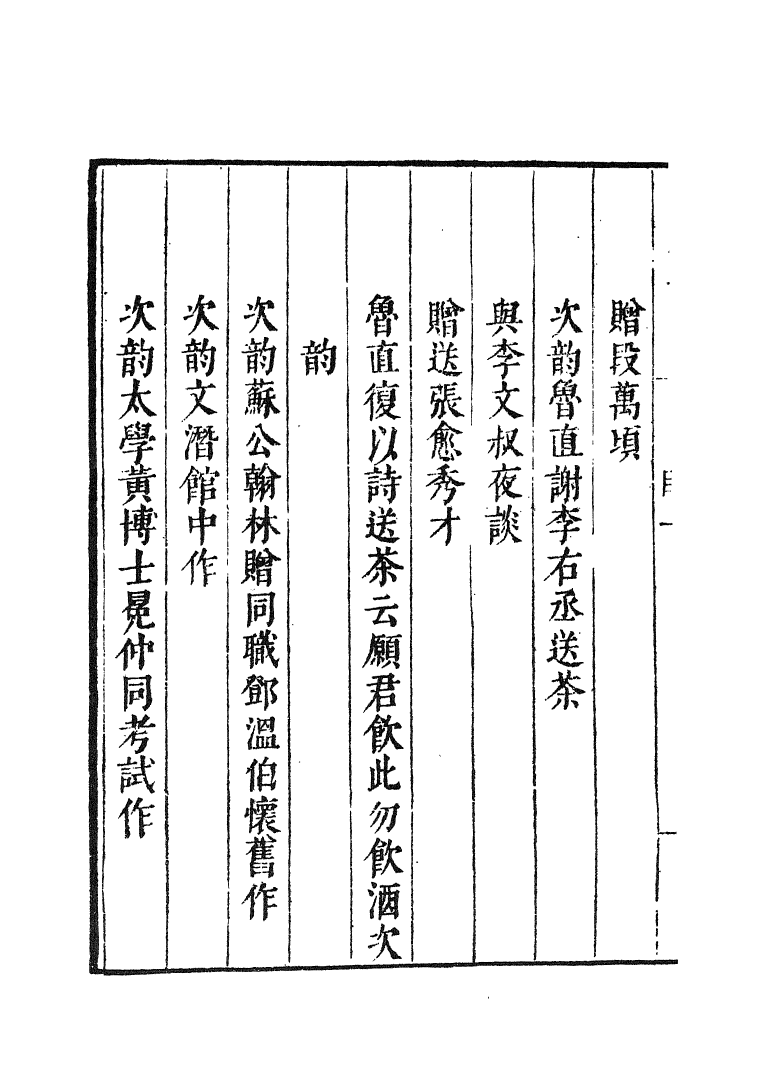 贈段萬頃
次韵魯直謝李右丞送茶
與李文叔夜談
贈送張愈秀才
魯直復以詩送茶云願君飲此勿飲酒次
韵
次韵蘇公翰林贈同職鄧温伯懷舊作
次韵文潛館中作
次韵太學黃博士冕仲同考試作